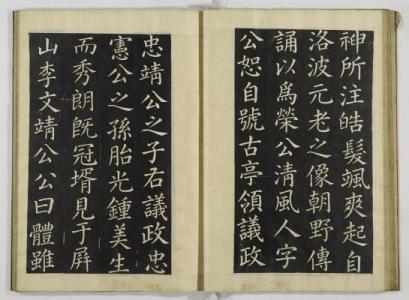 神所注皓髮颯爽起自
洛波元老之像朝野傳
誦以爲榮公清風人字
公恕自號古亭領議政
忠靖公之子右議政忠
憲公之孫胎光鍾美生
而秀朗旣冠壻見于屛
山李文靖公公曰體雖